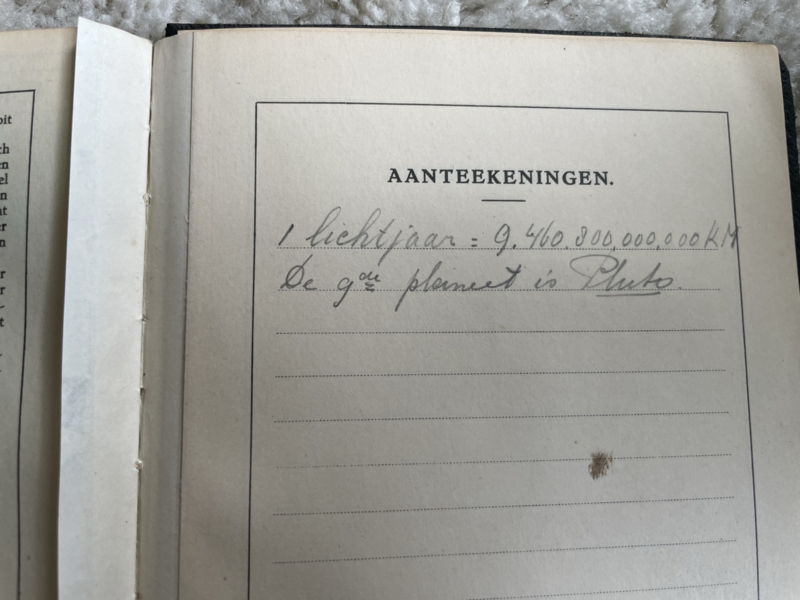 oit
ch
en
el
n
nt
er
n
r
r
-
t
AANTEEKENINGEN.
1 lichtjaar = 9.460.800,000,000 KM
De 9de planeet is Pluto.